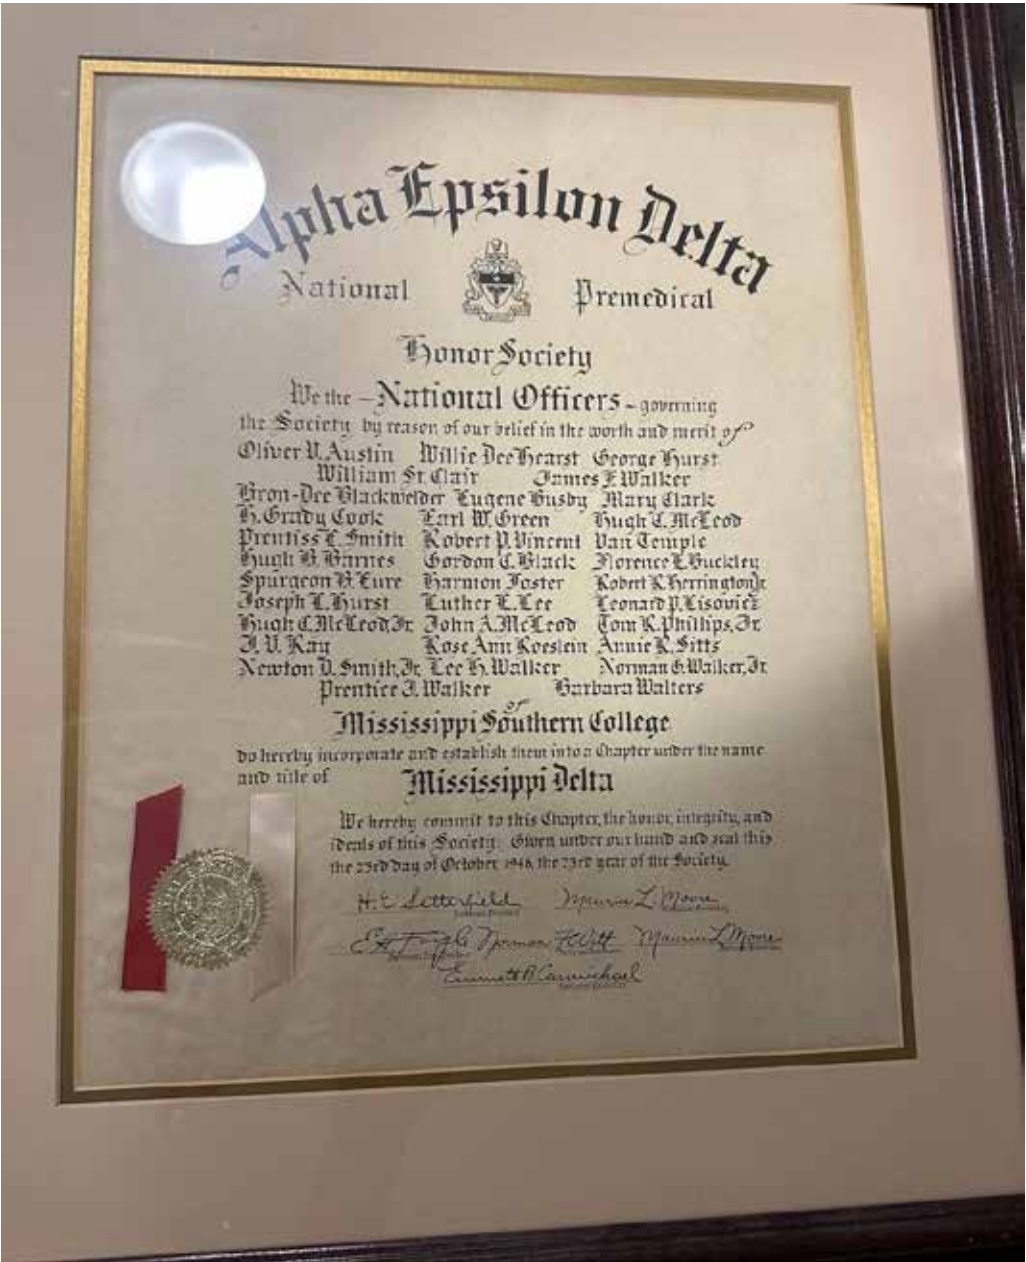 Alpha Epsilon Delta
National Premedical
Honor Society
We the – National Officers – governing
the Society by reason of our belief in the worth and merit of
Oliver V. Austin Willie Dee Hearst George Hurst
William St. Clair James F. Walker
Bron-Dee Blackwelder Eugene Busby Mary Clark
H. Grady Cook Earl W. Green Hugh C. McLeod
Prentiss L. Smith Robert P. Vincent Van Temple
Hugh B. Barnes Gordon C. Black Florence E. Buckley
Spurgeon H. Eure Harmon Foster Robert K. Herrington Jr.
Joseph L. Hurst Luther L. Lee Leonard P. Lisovicz
Hugh C. McLeod, Jr. John A. McLeod Tom K. Phillips, Jr.
J. V. Ray Rose Ann Koeslein Annie R. Sitts
Newton D. Smith, Jr. Lee H. Walker Norman G. Walker, Jr.
Prentice J. Walker Barbara Walters
of
Mississippi Southern College
do hereby incorporate and establish them into a Chapter under the name
and title of Mississippi Delta
We hereby commit to this Chapter, the honor, integrity, and
ideals of this Society. Given under our hand and seal this
the 23rd day of October 1948, the 23rd year of the Society.
H. E. Setterfield Maurice L. Moore
Norman F. Witt Maurice L. Moore
Emmett B. Carmichael